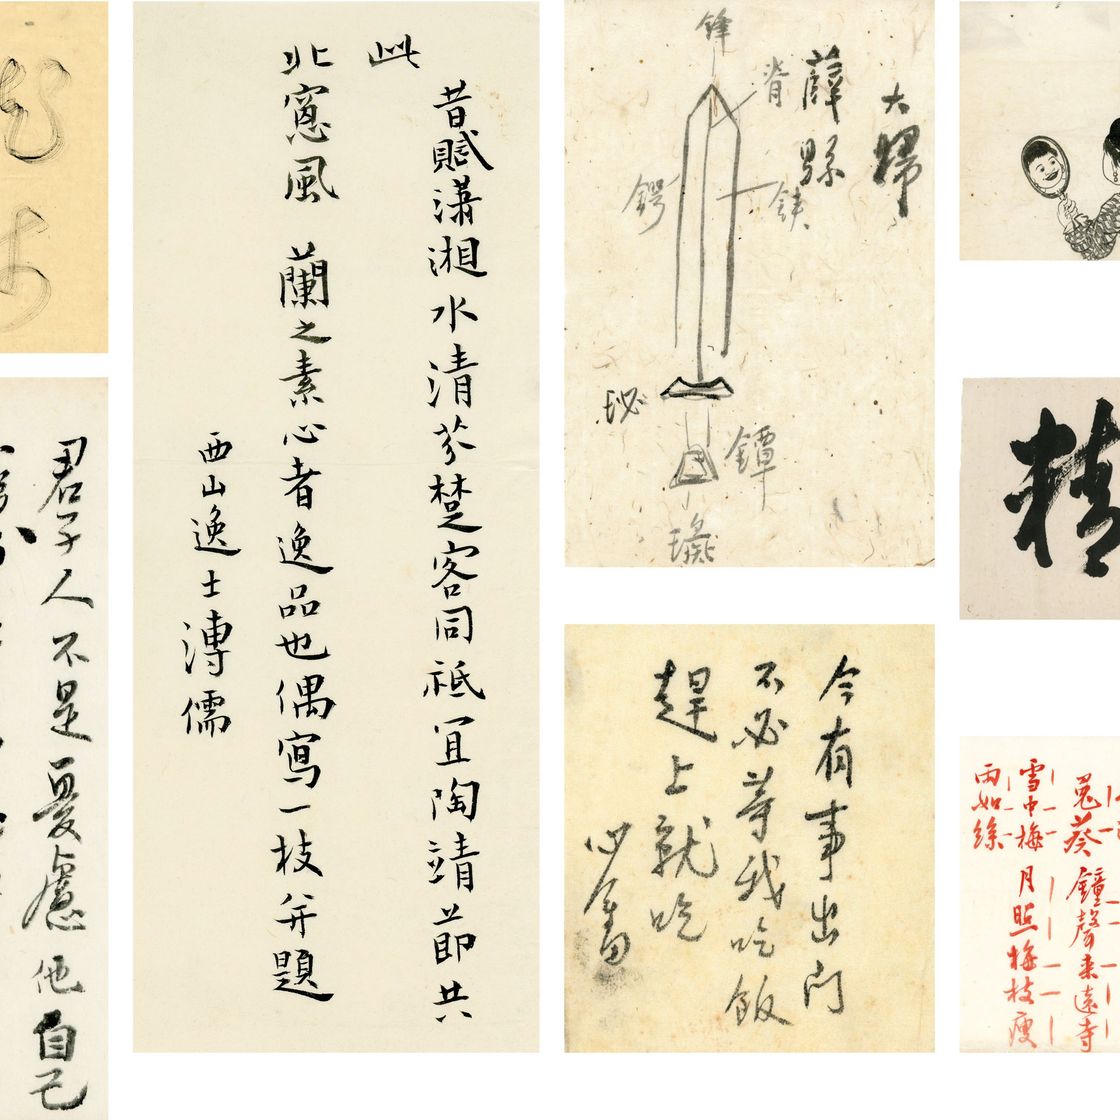 昔賦瀟湘水清芬楚客同祗宜陶靖節共
此
北窻風　蘭之素心者逸品也偶寫一枝并題
西山逸士溥儒
大歸
薜縣
鋒
脊
鍔
鋏
珌
鐔
今有事出门
不必等我吃飯
趕上就吃
心畬
君子人不是憂慮他自己
精
兎葵　鐘聲来遠寺
雪中梅　月照梅枝瘦
雨如絲